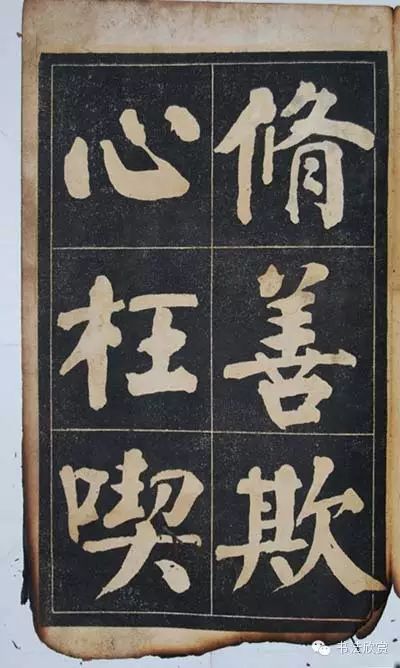 脩善欺
心枉喫
书法欣赏